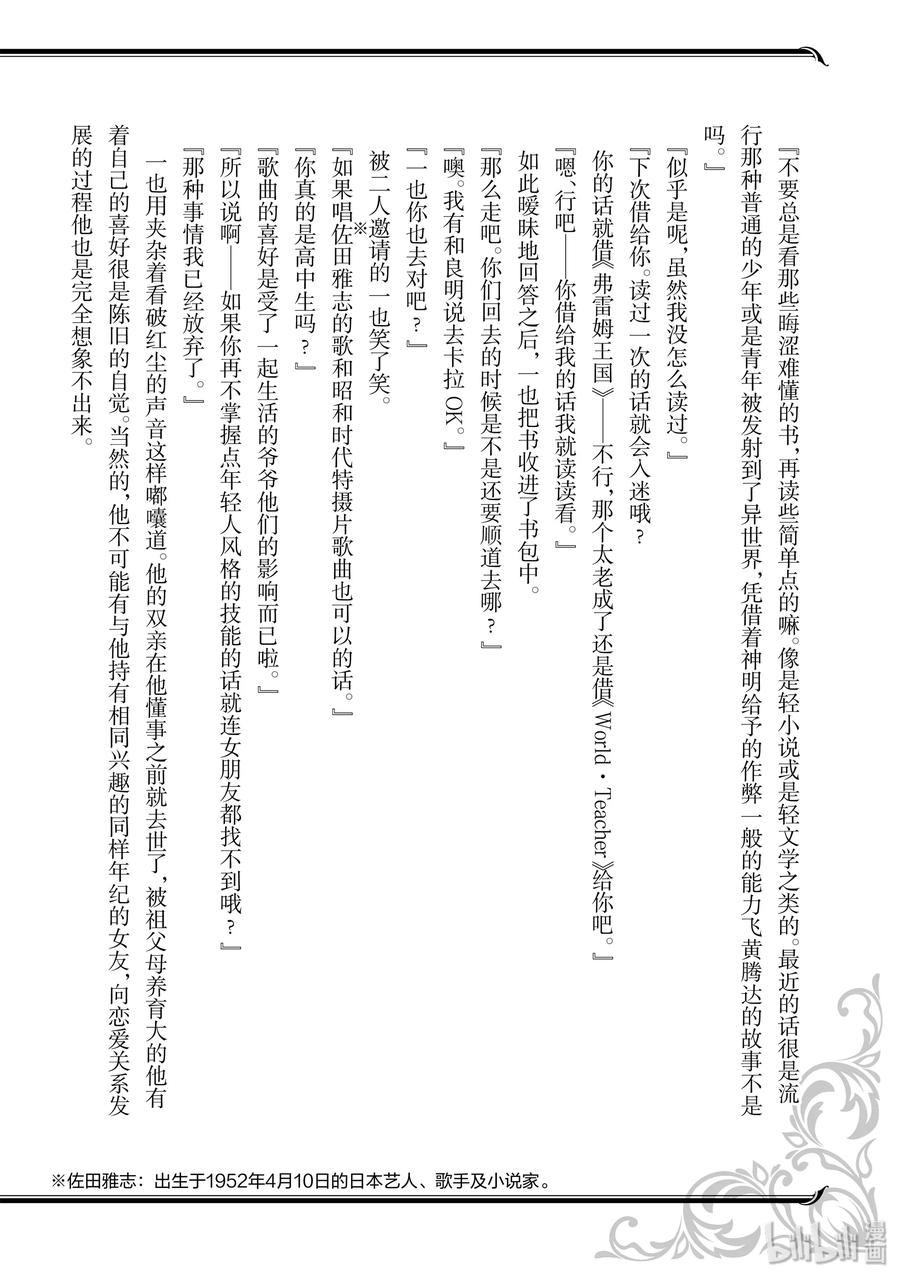 『不要总是看那些晦涩难懂的书，再读些简单点的嘛。像是轻小说或是轻文学之类的。最近的话很是流
行那种普通的少年或是青年被发射到了异世界，凭借着神明给予的作弊一般的能力飞黄腾达的故事不是
吗。』
『似乎是呢，虽然我没怎么读过。』
『下次借给你。读过一次的话就会入迷哦？
你的话就借《弗雷姆王国》——不行，那个太老成了还是借《World·Teacher》给你吧。』
『嗯、行吧——你借给我的话我就读读看。』
如此暧昧地回答之后，一也把书收进了书包中。
『那么走吧。你们回去的时候是不是还要顺道去哪？』
『噢。我有和良明说去卡拉OK。』
『一也你也去对吧？』
被二人邀请的一也笑了笑。
『如果唱※佐田雅志的歌和昭和时代特摄片歌曲也可以的话。』
『你真的是高中生吗？』
『歌曲的喜好是受了一起生活的爷爷他们的影响而已啦。』
『所以说啊——如果你再不掌握点年轻人风格的技能的话就连女朋友都找不到哦？』
『那种事情我已经放弃了。』
一也用夹杂着看破红尘的声音这样嘟囔道。他的双亲在他懂事之前就去世了，被祖父母养育大的他有
着自己的喜好很是陈旧的自觉。当然的，他不可能有与他持有相同兴趣的同样年纪的女友，向恋爱关系发
展的过程他也是完全想象不出来。
※佐田雅志：出生于1952年4月10日的日本艺人、歌手及小说家。
bilibili漫画